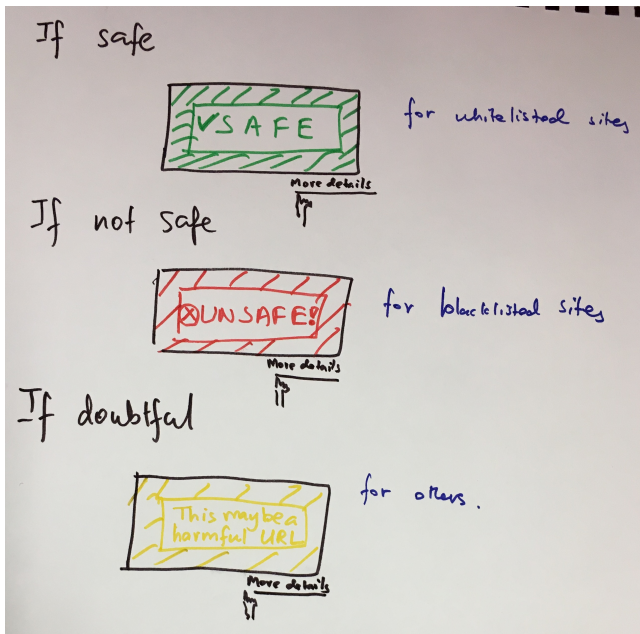 If safe
✓SAFE
for whitelisted sites
More details
If not safe
⊗UNSAFE!
for blacklisted sites
More details
If doubtful
This maybe a
harmful URL
for others.
More details